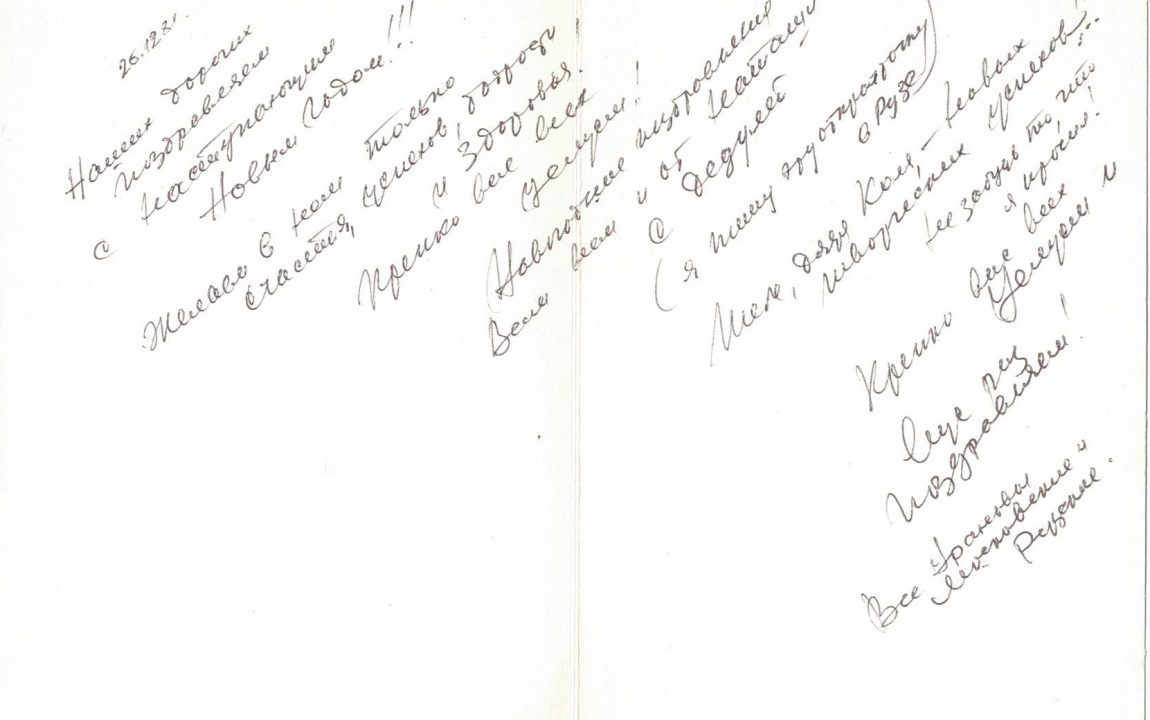 26.12.81.
Наших дорогих
поздравляем
с наступающим
Новым годом!!!
Желаю в нем только
счастья, успехов, бодрости
и здоровья!
Крепко вас всех
целуем!
Новогодние поздравления
Всем всем и от Наташи
с Дедулей
(я пишу эту открытку
в Рузе)
Тебе, дядя Коля, – новых
творческих успехов!..
Не забудь то что
я просил!
Крепко вас всех
целуем и
Еще раз
поздравляем!
Все
Московские и
Рузские.